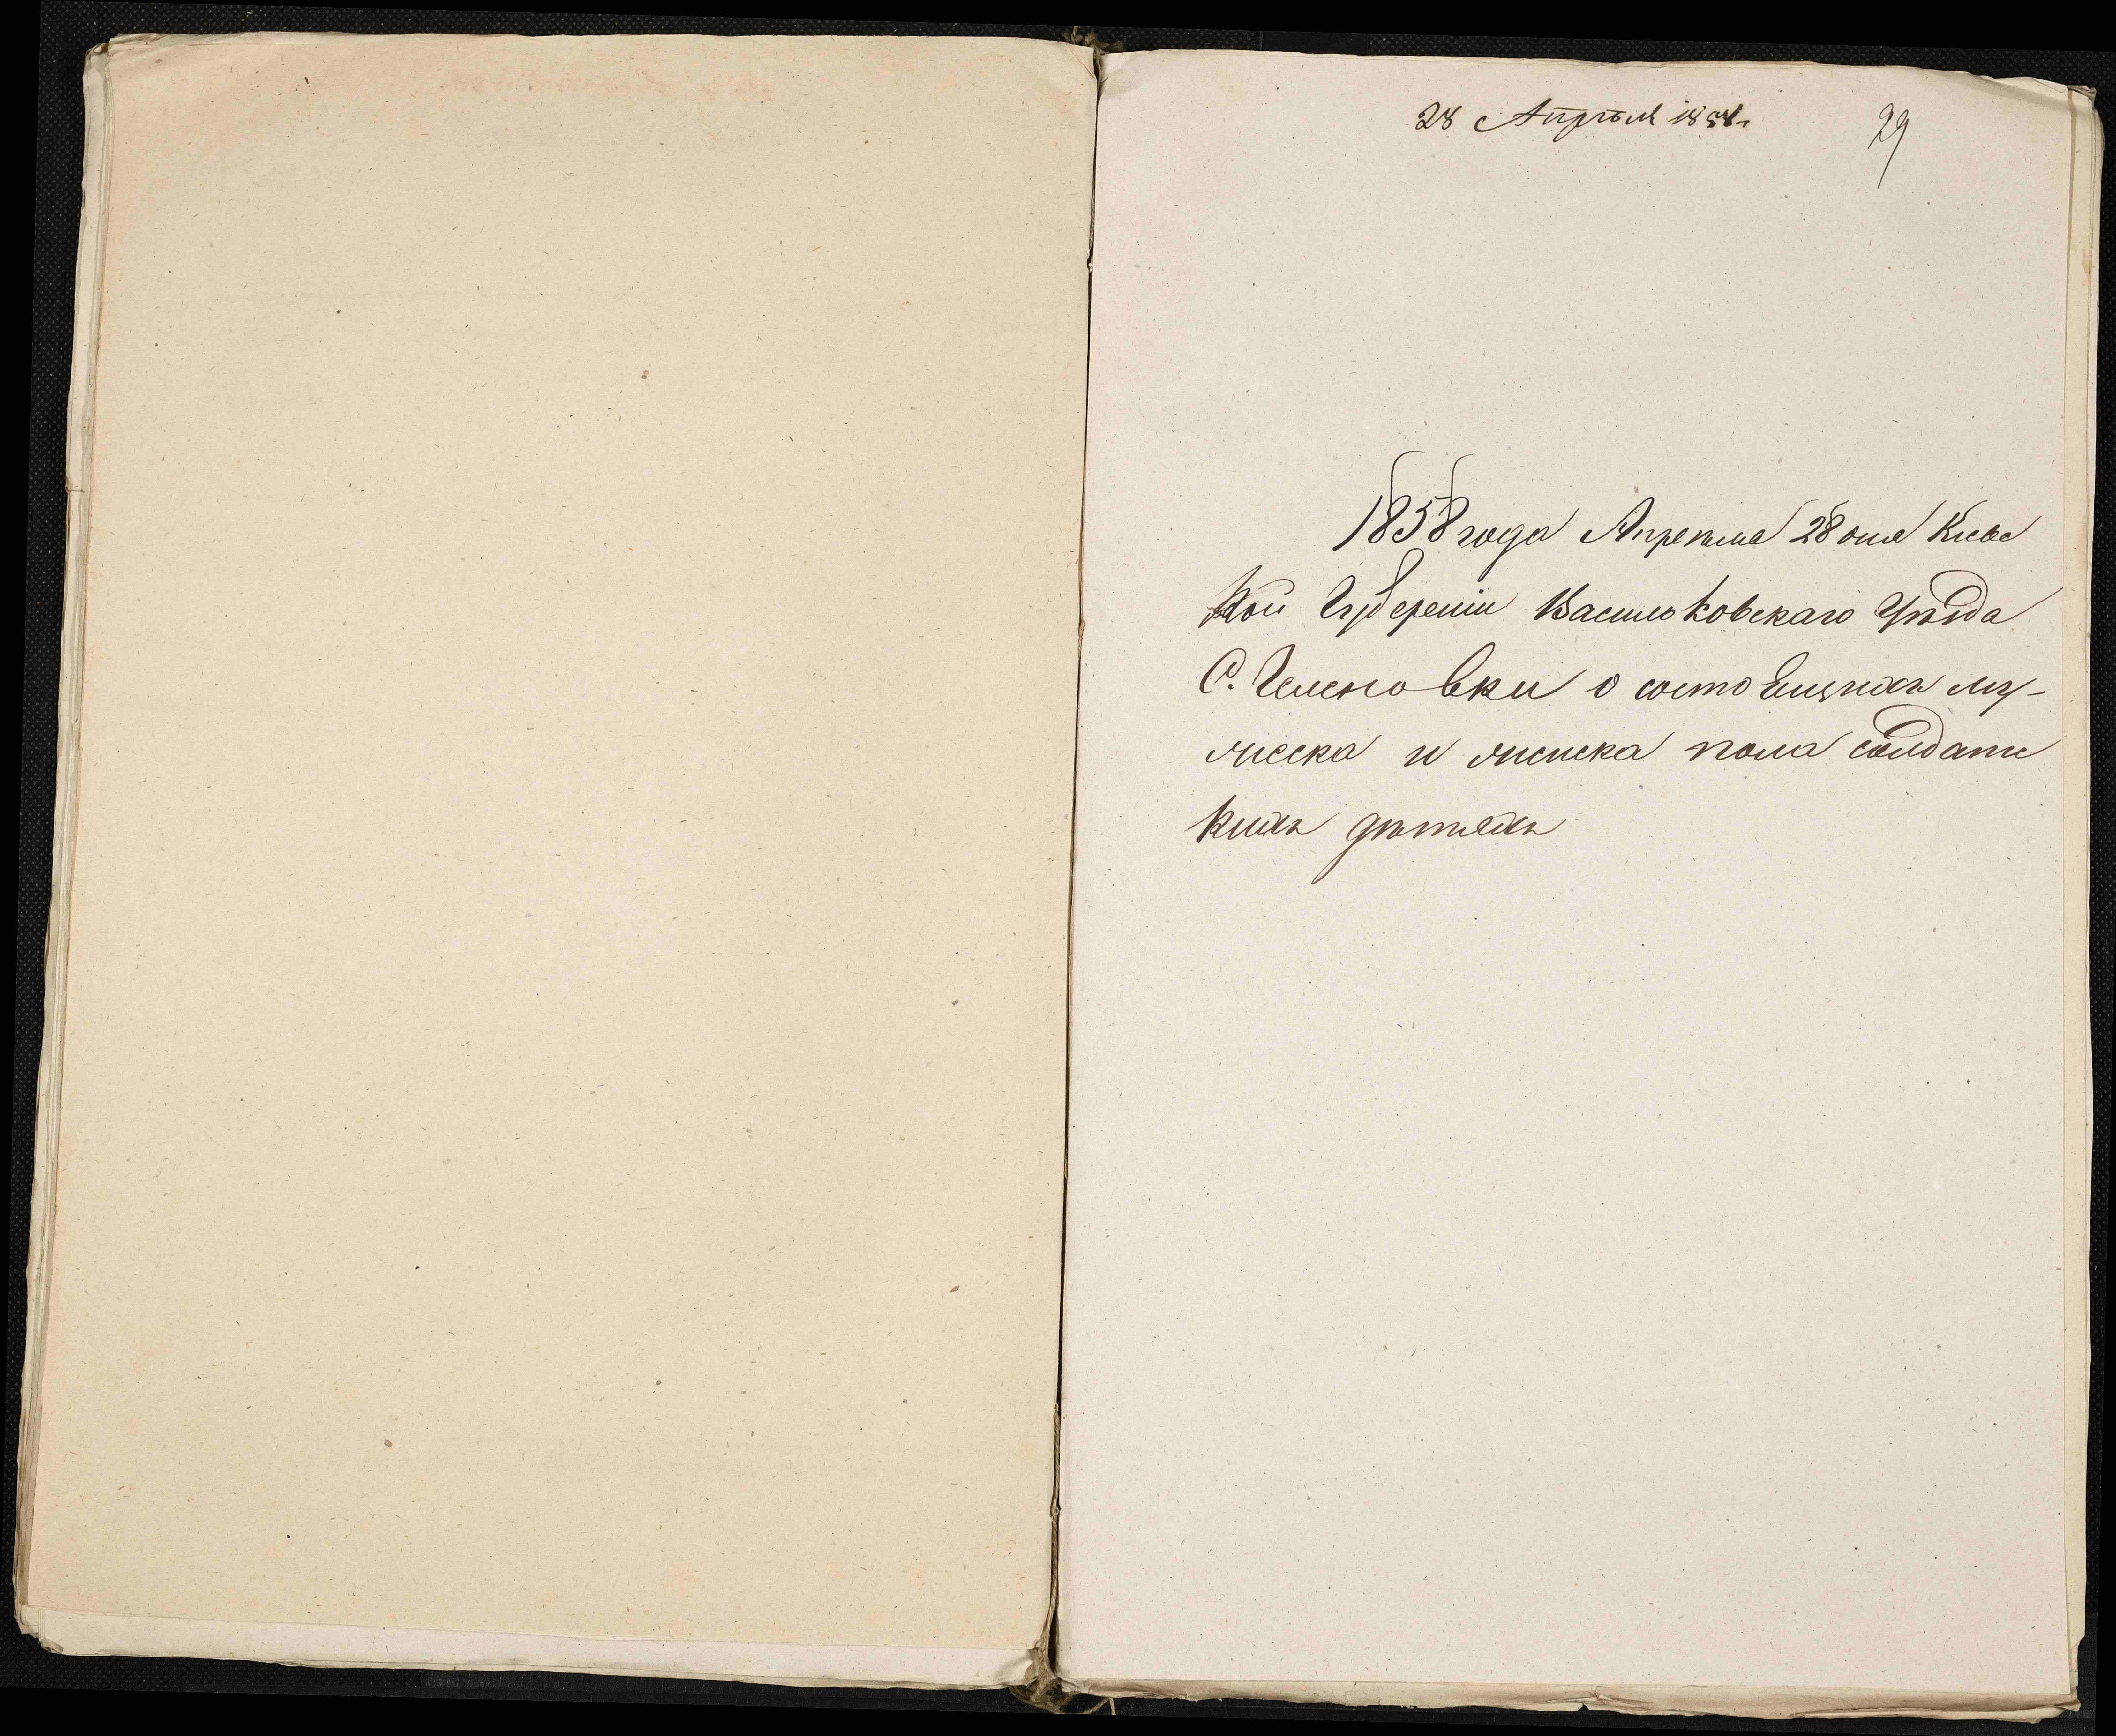 28 Апрѣля 1858 г.
29
1858 года Апрѣля 28 дня Киевс
кой Губерніи Васильковскаго Уѣзда
С. о состоящихъ му-
жеска и женска пола солдатс
кихъ дѣтяхъ